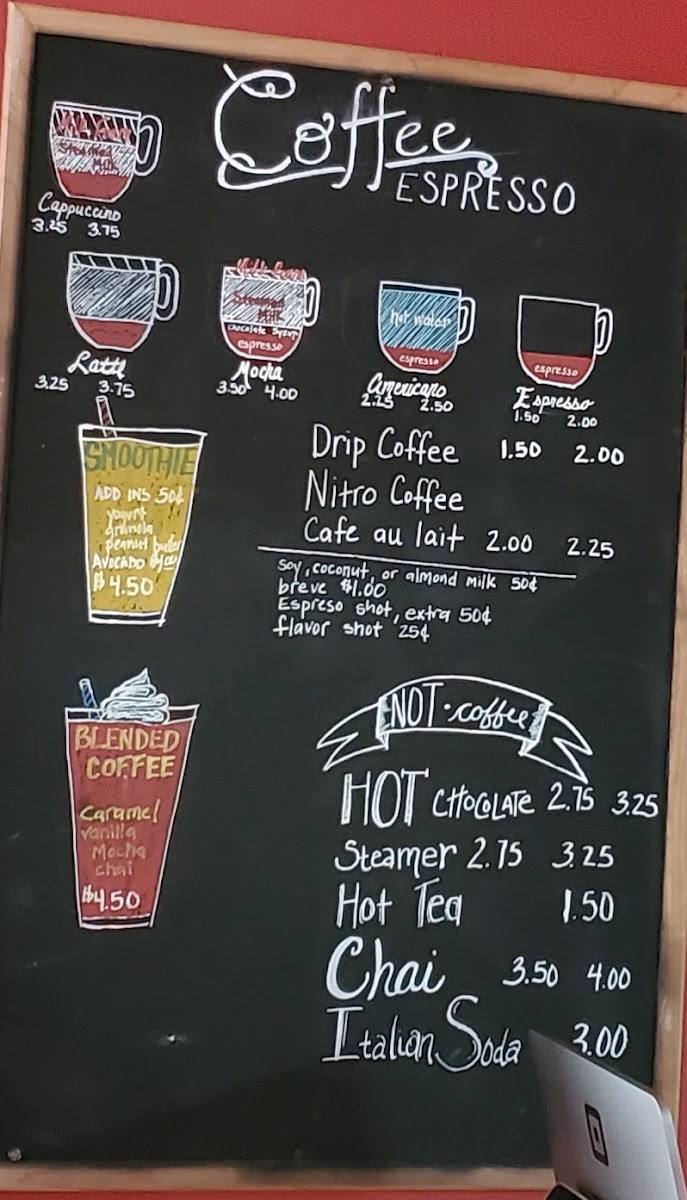 Coffee
ESPRESSO
Milk Foam
Steamed
Milk
Cappuccino
3.25 3.75
Latte
3.25 3.75
Milk Foam
Steamed
Milk
chocolate syrup
espresso
Mocha
3.50 4.00
hot water
espresso
Americano
2.25 2.50
espresso
Espresso
1.50 2.00
SMOOTHIE
ADD INS 50¢
yogurt
granola
peanut butter
AVOCADO $1.00
$4.50
Drip Coffee 1.50 2.00
Nitro Coffee
Cafe au lait 2.00 2.25
soy, coconut, or almond milk 50¢
breve $1.00
Espreso shot, extra 50¢
flavor shot 25¢
BLENDED
COFFEE
Caramel
vanilla
Mocha
chai
$4.50
NOT·coffee
HOT CHOCOLATE 2.75 3.25
Steamer 2.75 3.25
Hot Tea 1.50
Chai 3.50 4.00
Italian Soda 3.00